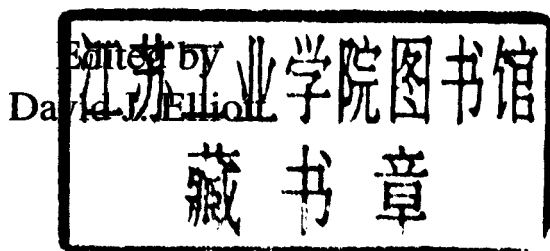 Edited by
David J. Elliott
江苏工业学院图书馆
藏书章